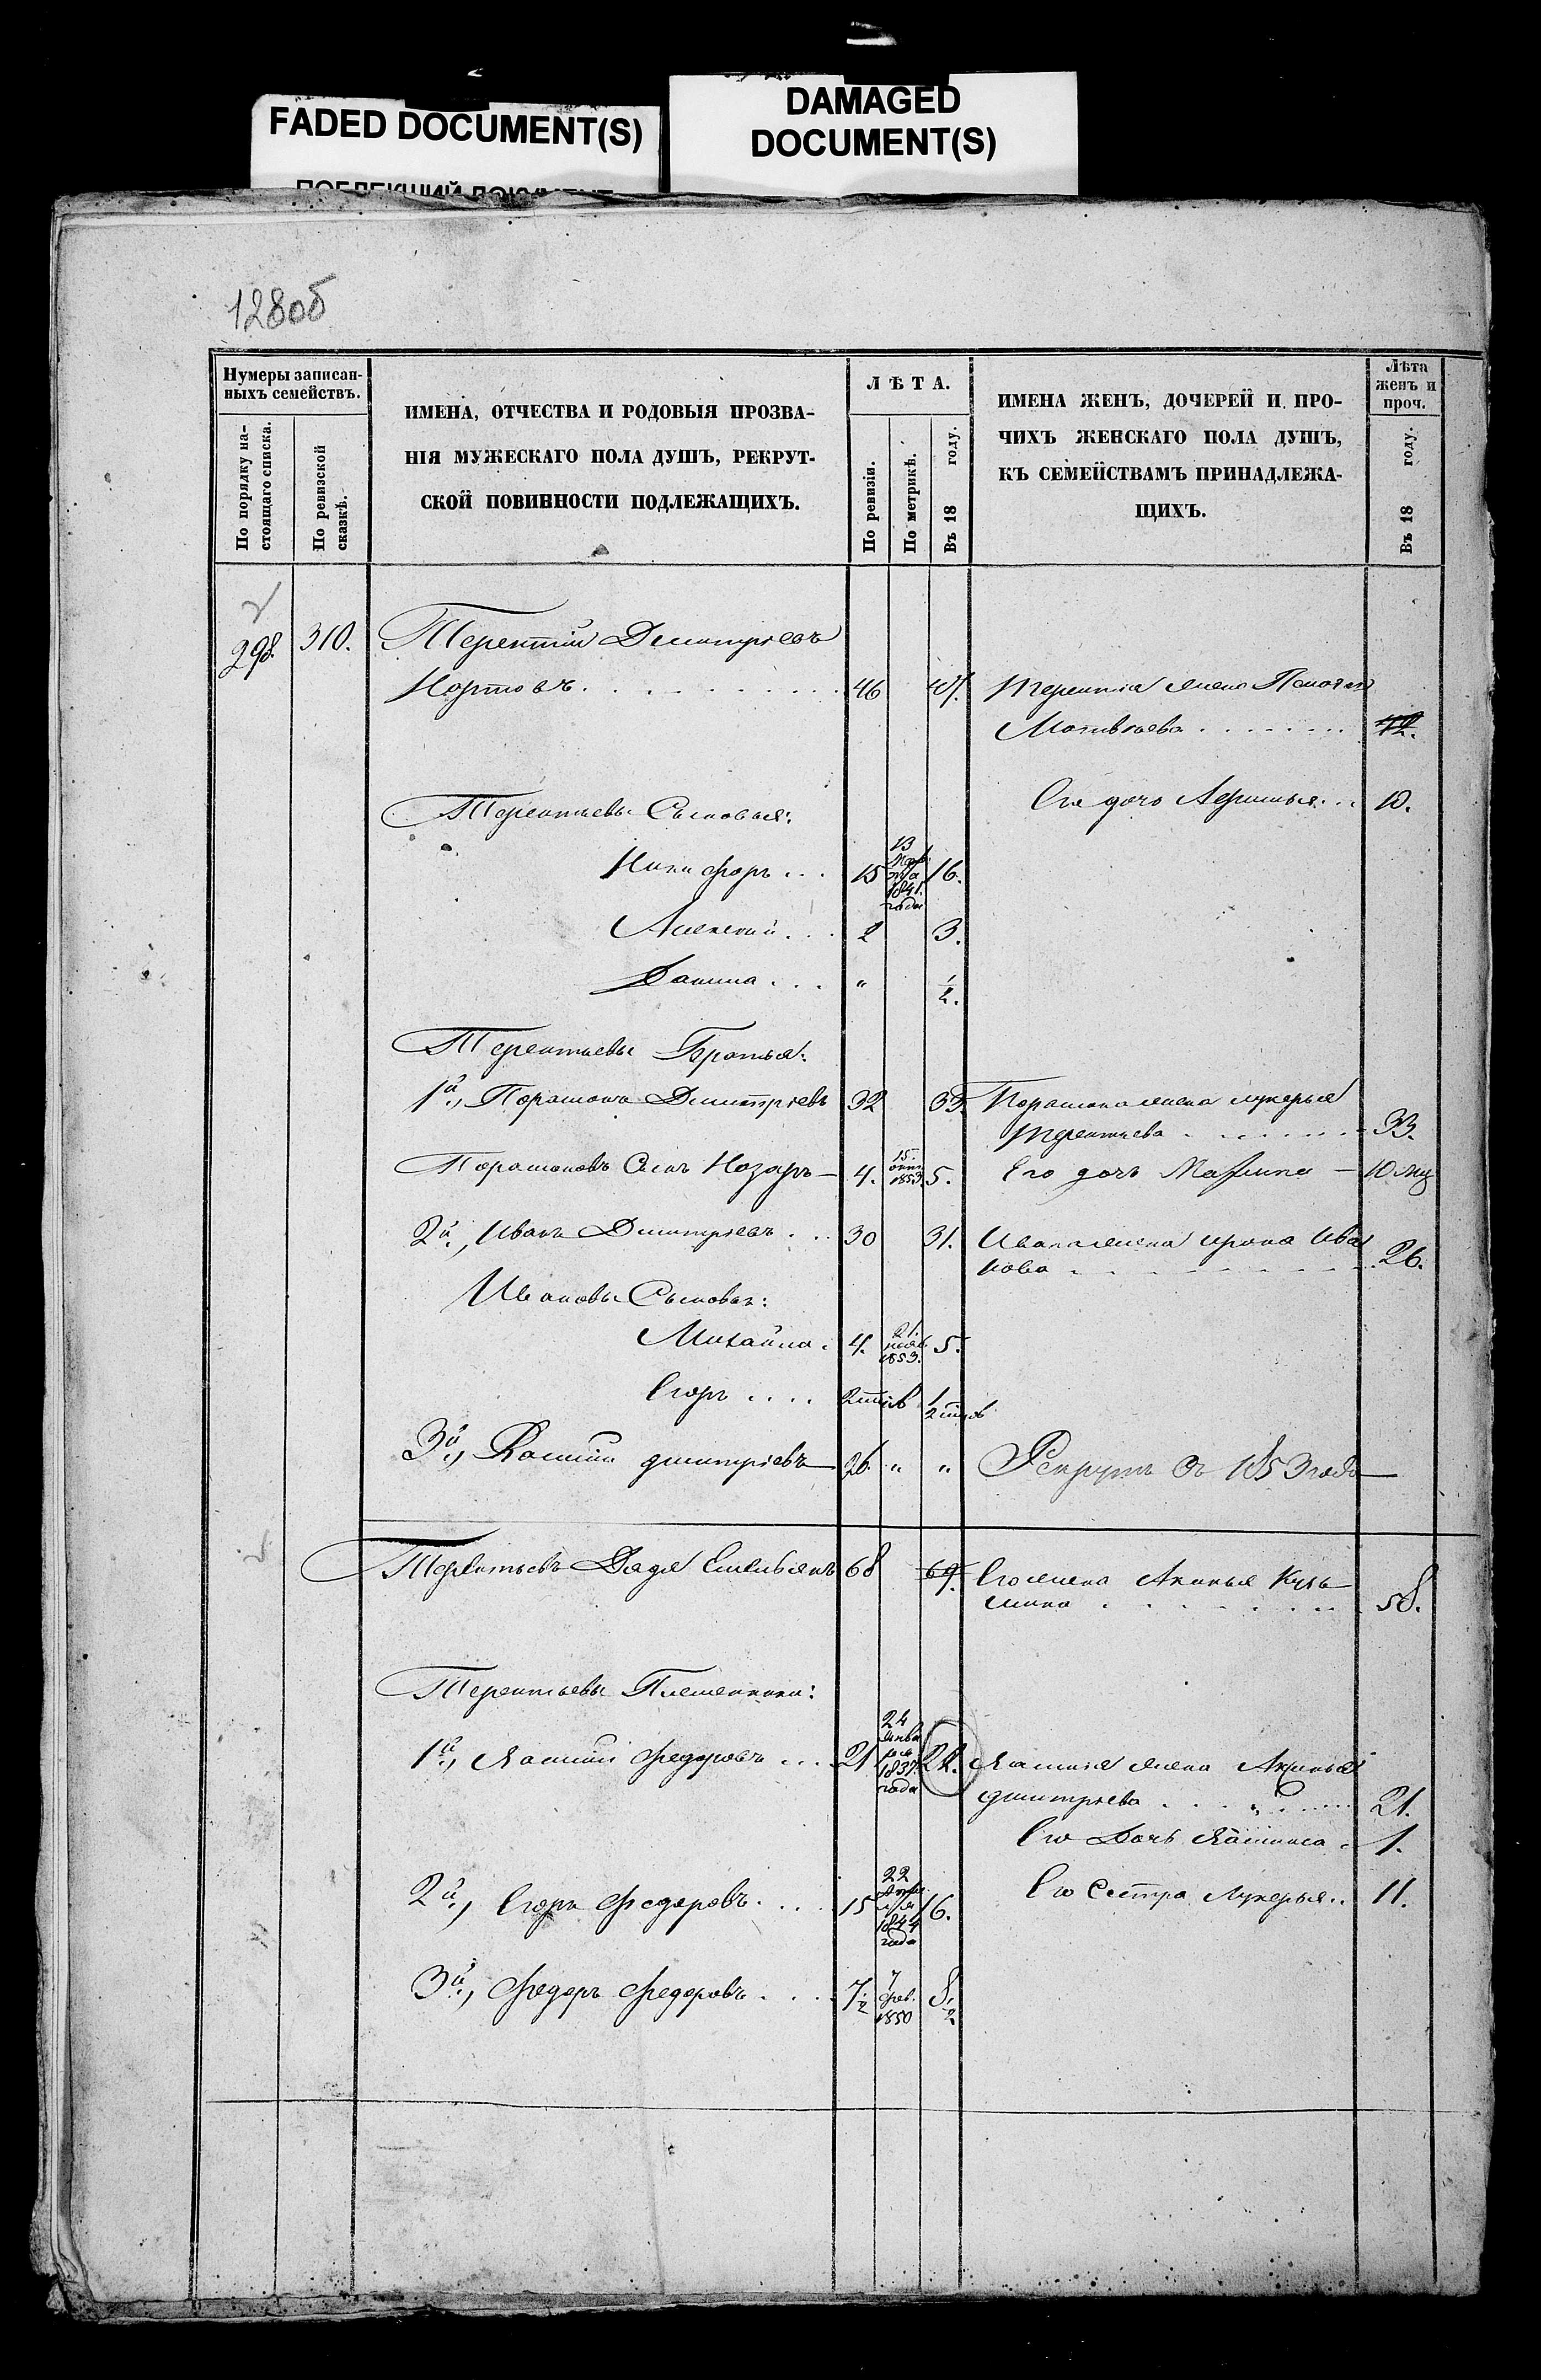 FADED DOCUMENT(S)
DAMAGED
DOCUMENT(S)
128об
Нумеры записан-
ныхъ семействъ.
По порядку на-
стоящаго списка.
По ревизской
сказкѣ.
ИМЕНА, ОТЧЕСТВА И РОДОВЫЯ ПРОЗВА-
НІЯ МУЖЕСКАГО ПОЛА ДУШЪ, РЕКРУТ-
СКОЙ ПОВИННОСТИ ПОДЛЕЖАЩИХЪ.
ЛѢТА.
По ревизіи.
По метрикѣ.
Въ 18 году.
ИМЕНА ЖЕНЪ, ДОЧЕРЕЙ И ПРО-
ЧИХЪ ЖЕНСКАГО ПОЛА ДУШЪ,
КЪ СЕМЕЙСТВАМЪ ПРИНАДЛЕЖА-
ЩИХЪ.
Лѣта
женъ и
проч.
Въ 18 году.
298. 310. Терентій Дмитріевъ
46 47. Терентія жена
Матвѣева
Терентьевы Сыновья:
Его дочь 10.
Никифоръ 15 13 Мар та 1841. года 16.
Алексѣй 2 3.
Данила " 1/2.
Терентьевы Братья:
1й, Парамонъ Дмитріевъ 32 33. Парамона жена Лукерья
Терентьева 33.
Парамоновъ Сынъ Назаръ 4. 15 1853. 5. Его дочь Марина 10 мц
2й, Иванъ Дмитріевъ 30 31. Ивана жена Ирина Ива
нова 26.
Ивановы Сыновья:
Михайла 4. 21. нояб. 1853. 5.
Егоръ
3й, дмитріевъ 26. " " Рекрутъ съ 1853 года
Терентьевъ Дядя Емельянъ 68 69. Его жена Акинья Кузь
мина 58.
Терентьевы Племянники:
1й, Федоровъ 21 24 Янва ря 1837. года 22. жена
дмитріева 21.
Его Дочь 1.
2й, Егоръ Федоровъ 15 22 Апре ля 1844 года 16. Его Сестра Лукерья 11.
3й, Федоръ Федоровъ 7 1/2 7 фев. 1850 8 1/2